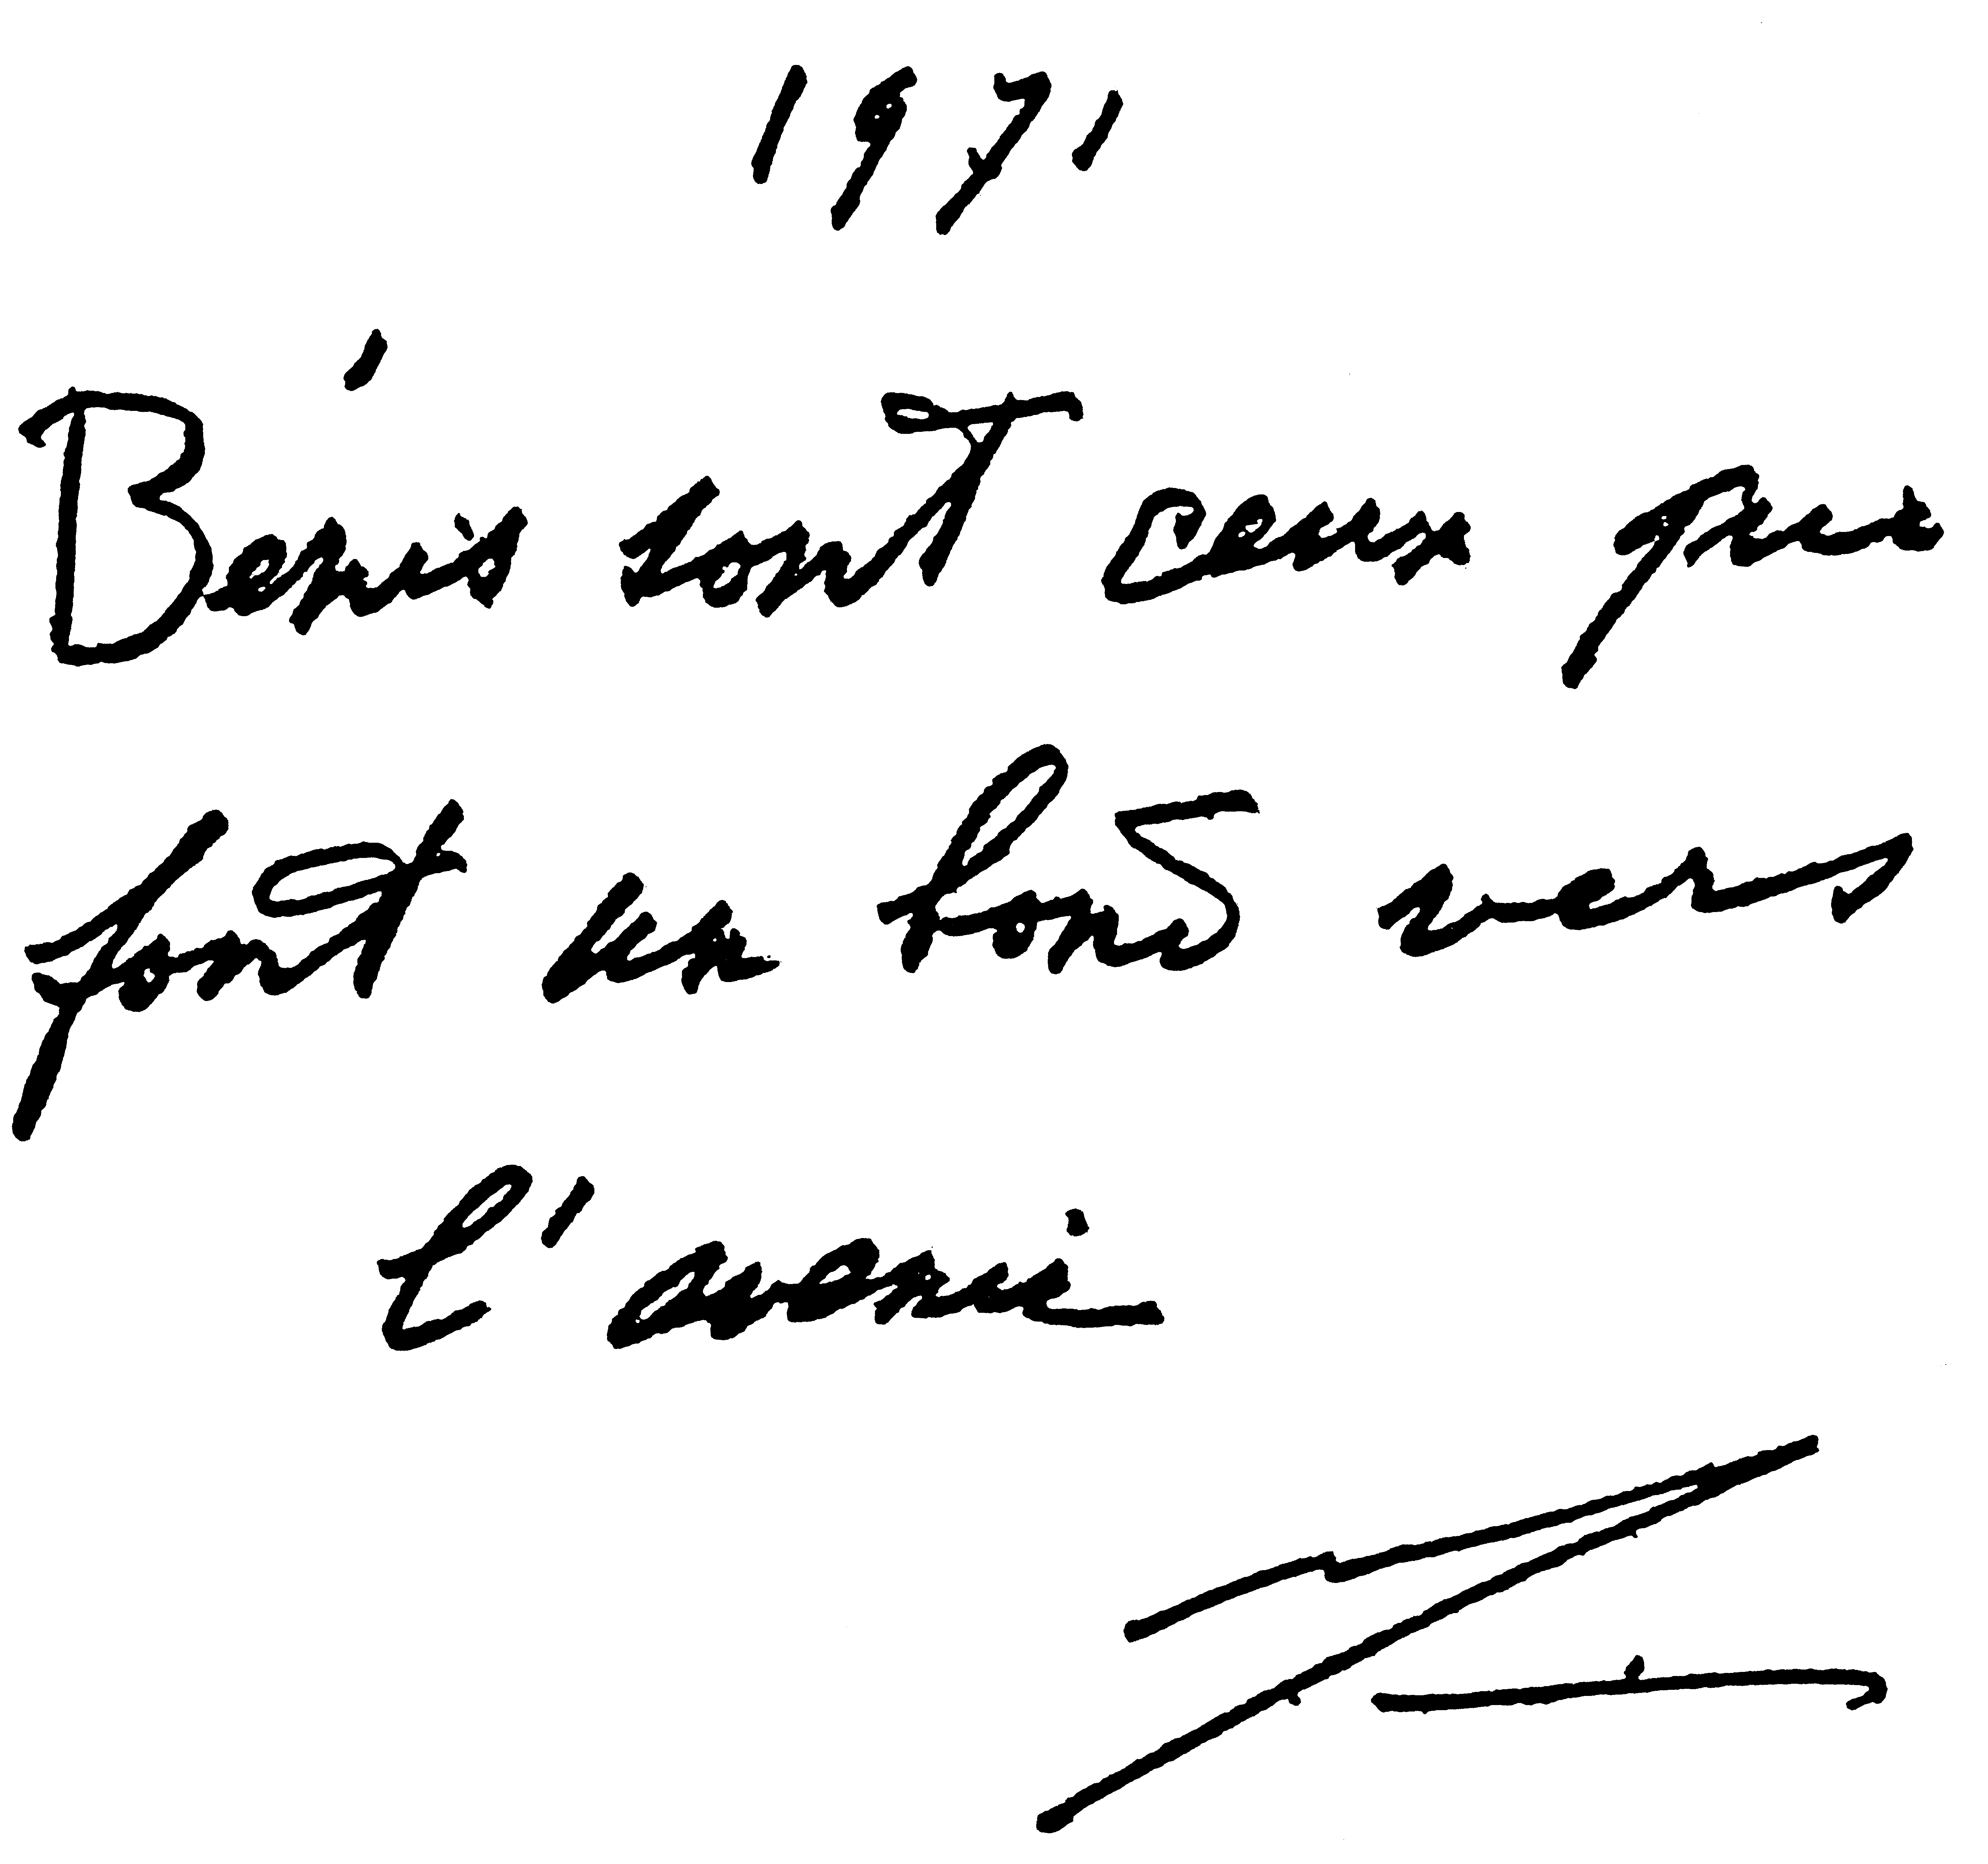 1971
Bénis sont ceux qui
font le vers
l'avenir